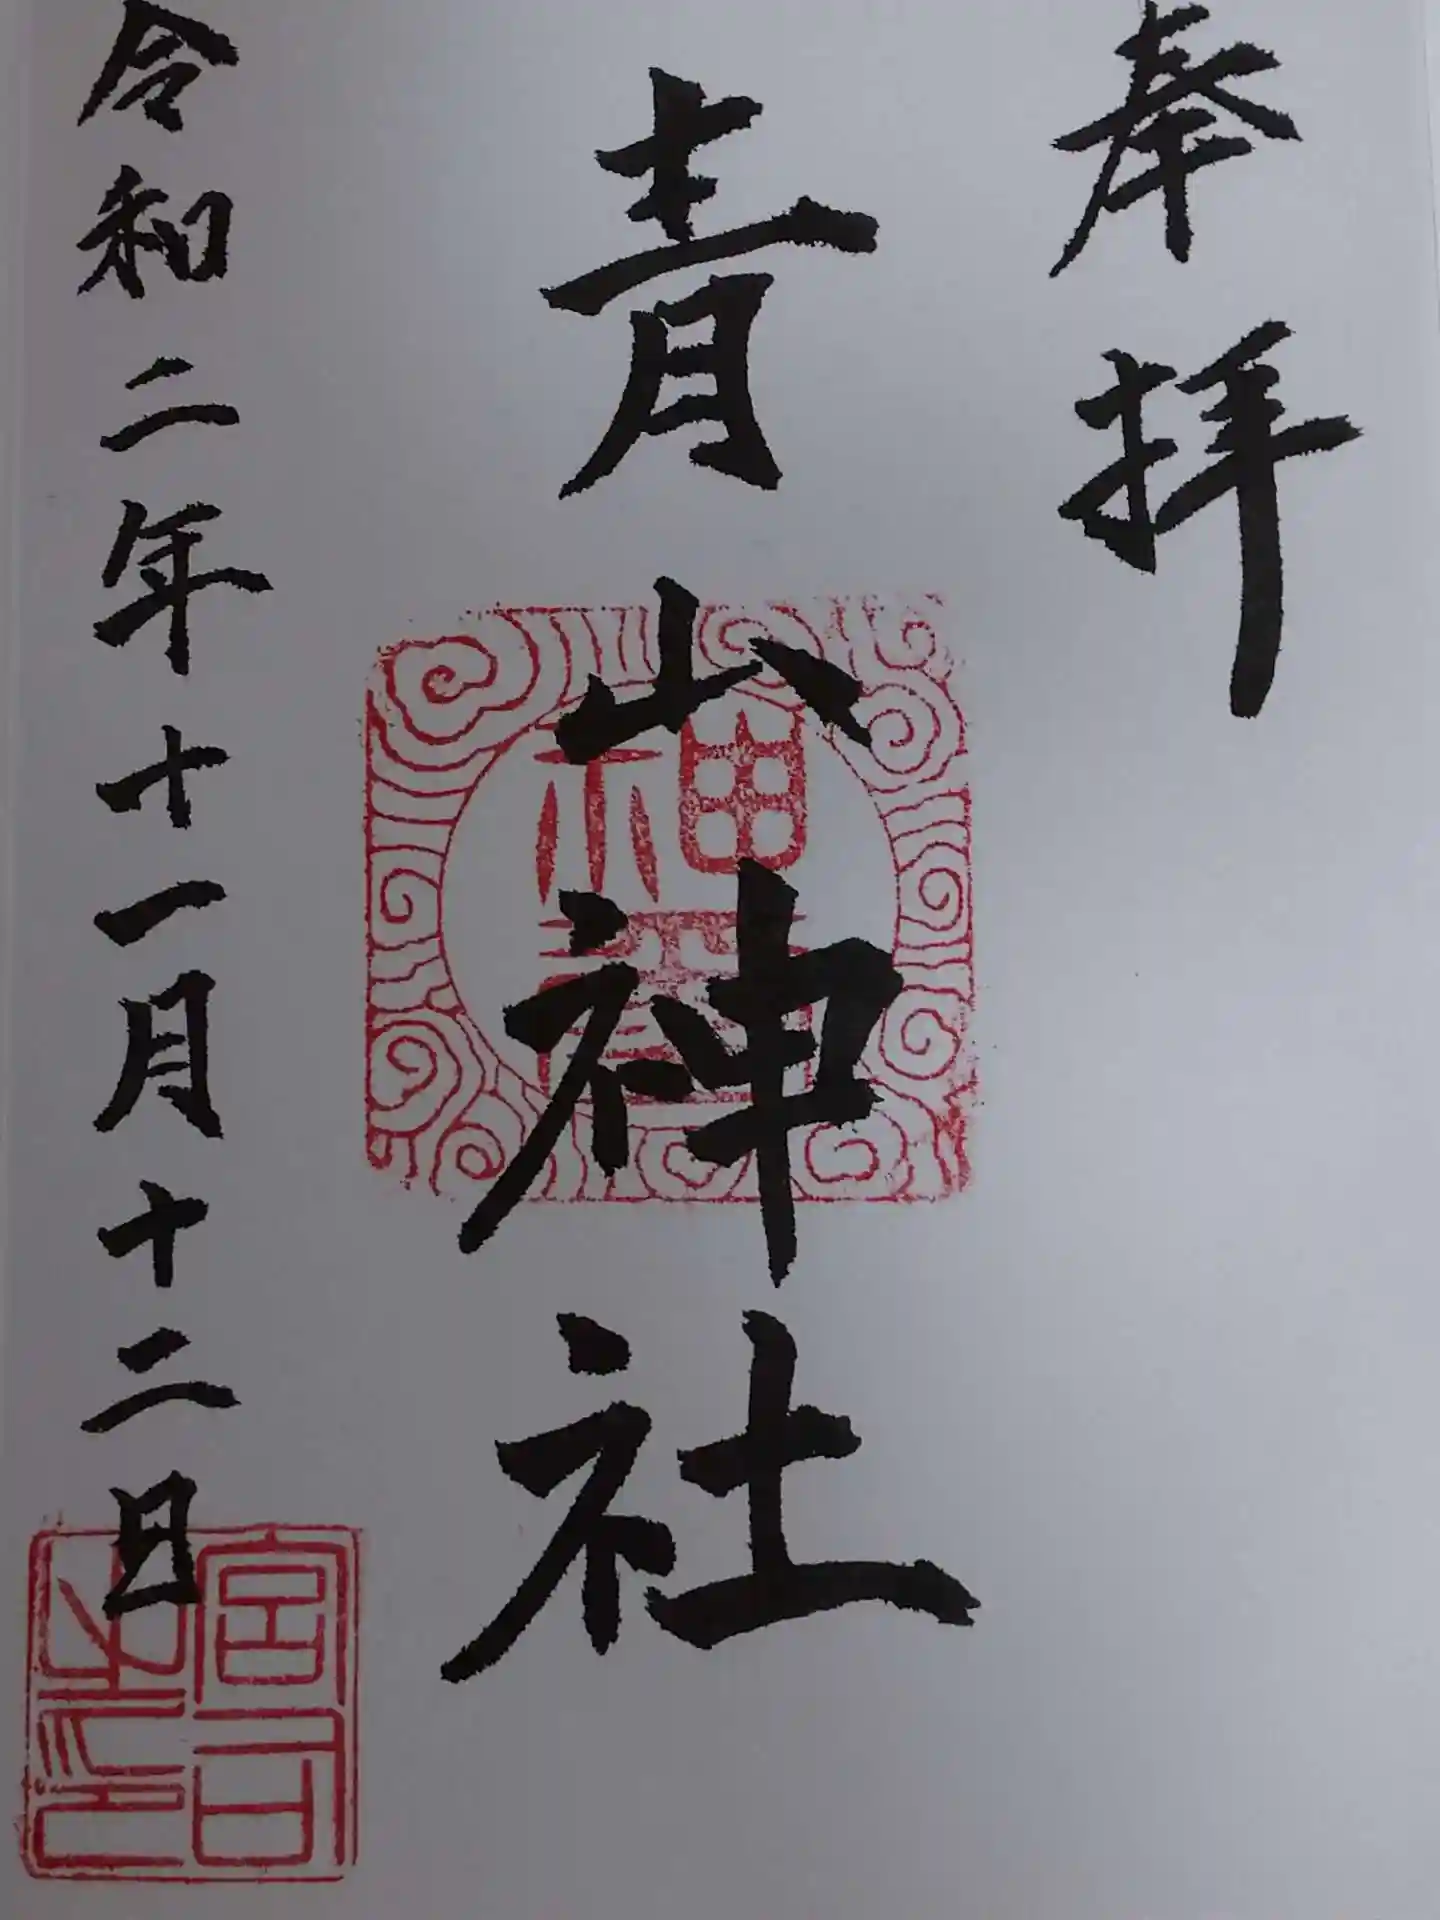 奉拝
青山神社
令和二年十一月十二日
神璽
宮司之印